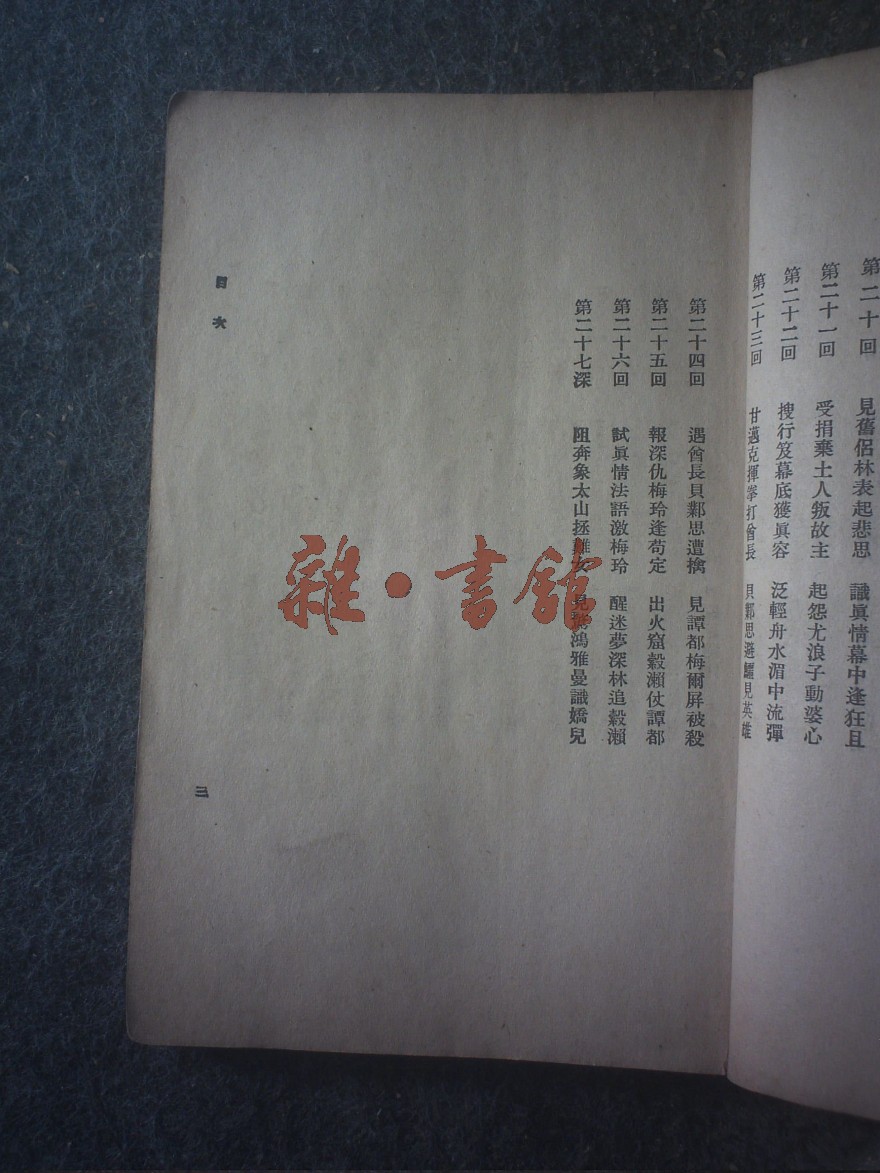 第二十回　見舊侶林表起悲思　識眞情幕中逢狂且
第二十一回　受捐棄土人叛故主　起怨尤浪子動婆心
第二十二回　搜行笈幕底獲眞容　泛輕舟水湄中流彈
第二十三回　甘邁克揮拳打酋長　貝鄴思避鱷見英雄
第二十四回　遇酋長貝鄴思遭擒　見譚都梅爾屛被殺
第二十五回　報深仇梅玲逢苟定　出火窟穀瀨仗譚都
第二十六回　試眞情法語激梅玲　醒迷夢深林追穀瀨
第二十七深　阻奔象太山拯難女　見鴻雅曼識嬌兒
目次
三
雜·書館